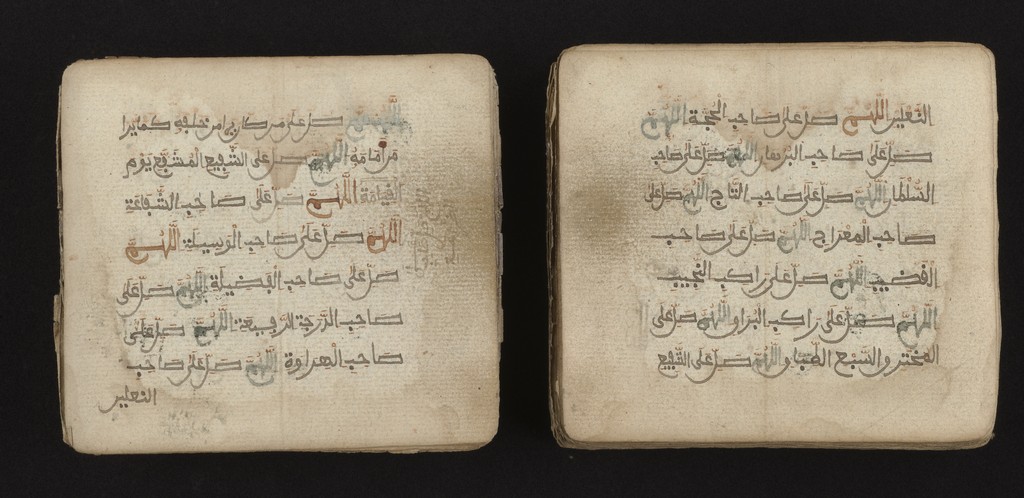 اللهم صل على من كان يرى من خلفه كما يرى
من أمامه اللهم صل على الشفيع المشفع يوم
القيامة اللهم صل على صاحب الشفاعة
اللهم صل على صاحب الوسيلة اللهم
صل على صاحب الفضيلة اللهم صل على
صاحب الدرجة الرفيعة اللهم صل على
صاحب الهراوة اللهم صل على صاحب
النعلين
النعلين اللهم صل على صاحب الحجة اللهم
صل على صاحب البرهان اللهم صل على صاحب
السلطان اللهم صل على صاحب التاج اللهم صل على
صاحب المعراج اللهم صل على صاحب
القضيب اللهم صل على راكب النجيب
اللهم صل على راكب البراق اللهم صل على
المخترق السبع الطباق اللهم صل على الشفيع